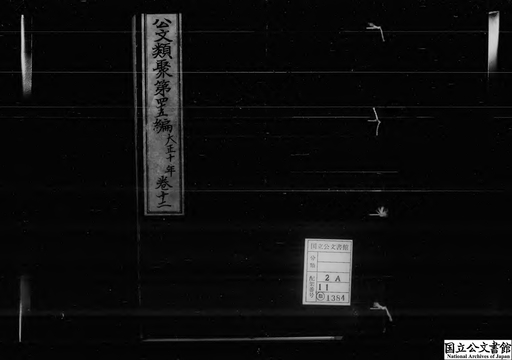 公文類聚第四五編大正十年巻十二
国立公文書館
分類
配架番号
2 A
11
類1384
国立公文書館
National Archives of Japan